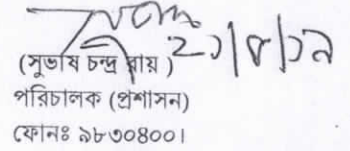 ২১/৮/১৯
(সুভাষ চন্দ্র রায় )
পরিচালক (প্রশাসন)
ফোনঃ ৯৮৩০৪০০।